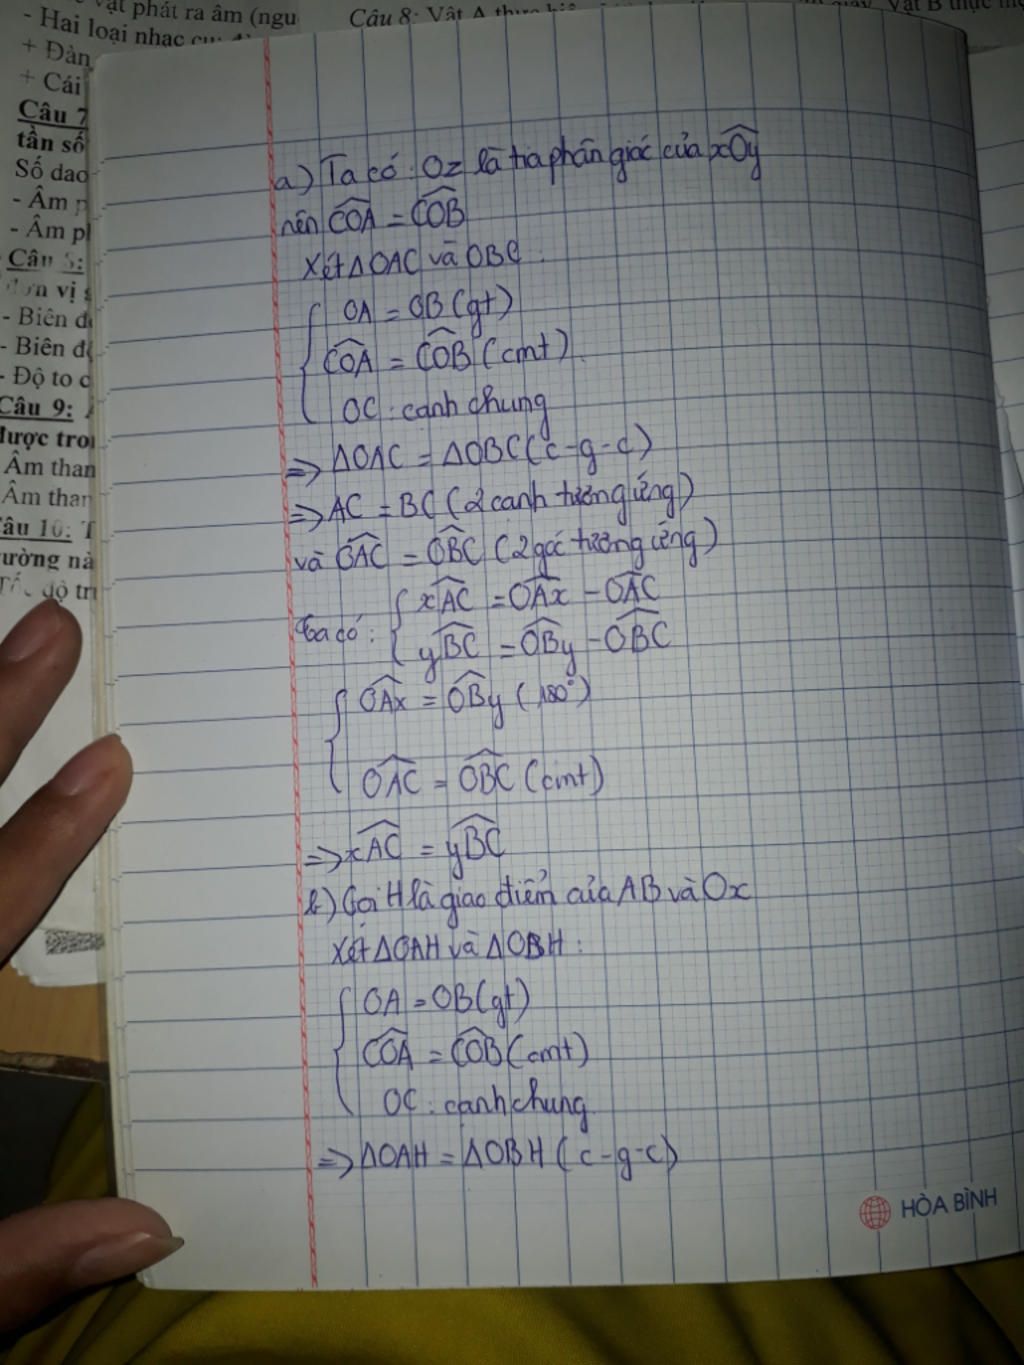 vật phát ra âm (ngu
- Hai loại nhạc cụ:
+ Đàn
+ Cái
Câu 7
tần số
Số dao
- Âm p
- Âm pl
Câu 8:
đơn vị
- Biên đ
- Biên độ
- Độ to c
Câu 9:
được tro
Âm than
Âm than
Câu 10: T
ường nà
Tốc độ tr
Câu 8: Vật A
Vật B thực
a) Ta có: Oz là tia phân giác của xOy
nên COA = COB
Xét ΔOAC và OBC:
OA = OB (gt)
COA = COB (cmt)
OC: cạnh chung
=> ΔOAC = ΔOBC (c-g-c)
=> AC = BC (2 cạnh tương ứng)
và OAC = OBC (2 góc tương ứng)
Ta có: xAC = OAx - OAC
yBC = OBy - OBC
OAx = OBy (180°)
OAC = OBC (cmt)
=> xAC = yBC
b) Gọi H là giao điểm của AB và Ox
Xét ΔOAH và ΔOBH:
OA = OB (gt)
COA = COB (cmt)
OC: cạnh chung
=> ΔOAH = ΔOBH (c-g-c)
HÒA BÌNH